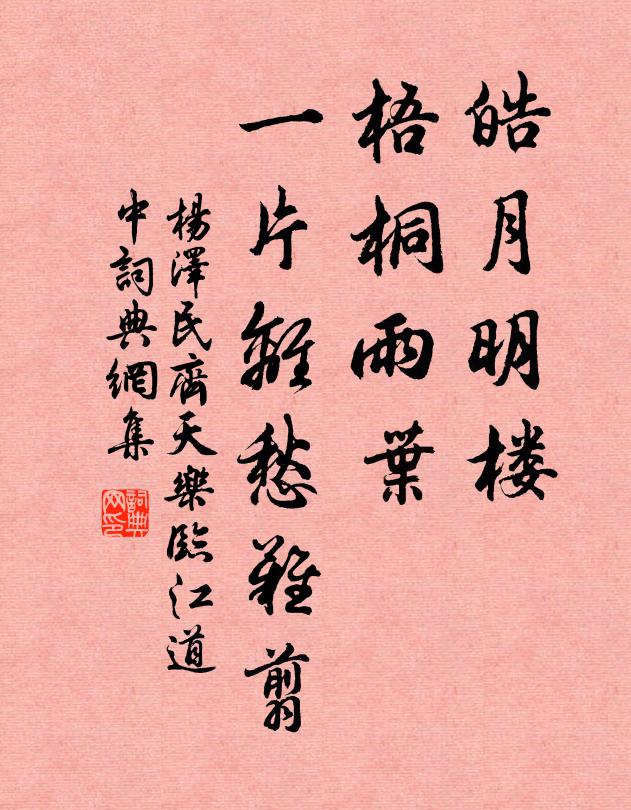 皓月明楼
梧桐雨葉
一片離愁難翦
楊澤民齊天樂臨江道
中詞典網集
詞典網印